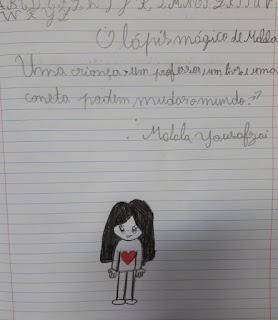 W X Y Z
O lápis mágico de Malala
Uma criança um professor um livro e uma
caneta podem mudar o mundo.
Malala Yousafzai